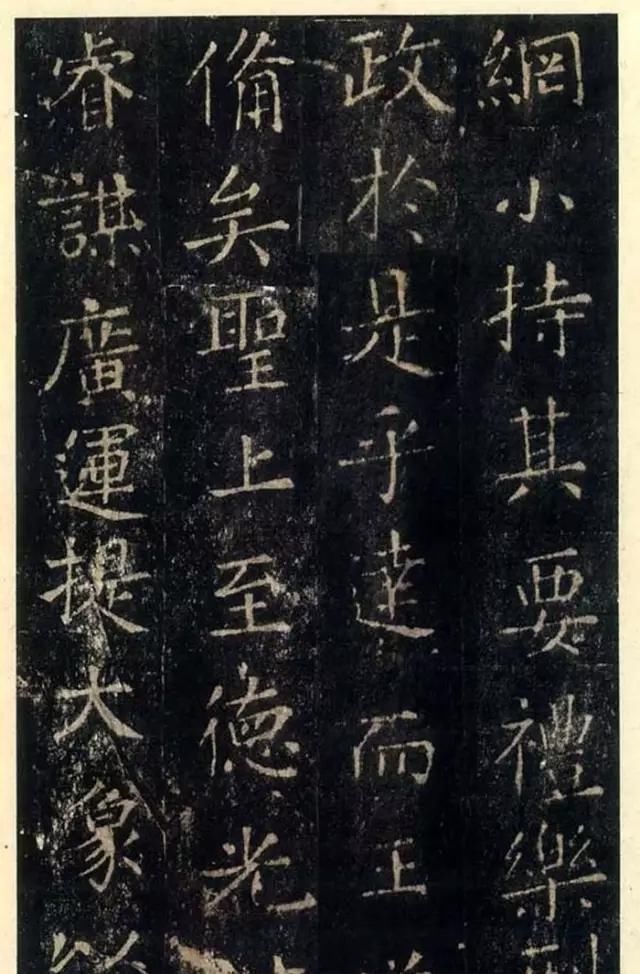 網小持其要禮樂
政於是乎達而王
備矣聖上至德光
睿謀廣運提大象